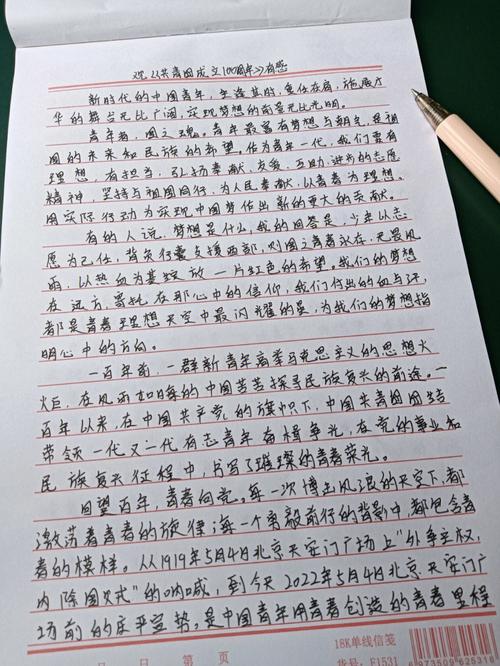 观《共青团成立100周年》有感
新时代的中国青年，生逢其时，重任在肩，施展才
华的舞台无比广阔，实现梦想的前景无比光明。
青年者，国之魂。青年最富有梦想与朝气，是祖
国的未来和民族的希望。作为青年一代，我们要有
理想，有担当，弘扬奉献，友爱，互助，进步的志愿
精神，坚持与祖国同行，为人民奉献，以青春为理想，
用实际行动为实现中国梦作出新的更大的贡献。
有的人说，梦想是什么，我的回答是，少年以志
愿为己任，背负行囊支援西部，则国之青春永存，无畏风
雨，以热血为基绽放一片红色的希望。我们的梦想
在远方，寄托在那心中的信仰，我们付出的血与汗，
都是青春理想天空中最闪耀的星，为我们的梦想指
明心中的方向。
一百年前，一群新青年高举马克思主义的思想火
炬，在风雨如晦的中国苦苦探寻民族复兴的前途。一
百年以来，在中国共产党的旗帜下，中国共青团团结
带领一代又一代有志青年奋楫争光，在党的事业和
民族复兴征程中，书写了璀璨的青春荣光。
回望百年，青春向党。每一次搏击风浪的天空下，都
激荡着青春的旋律；每一个勇毅前行的背影中，都包含青
春的模样。从1919年5月4日北京天安门广场上“外争主权，
内除国贼”的呐喊，到今天2022年5月4日北京天安门广
场前的庄严宣势。是中国青年用青春创造的青春里程
月 日 第 页
18K单线信笺
货号：F1531